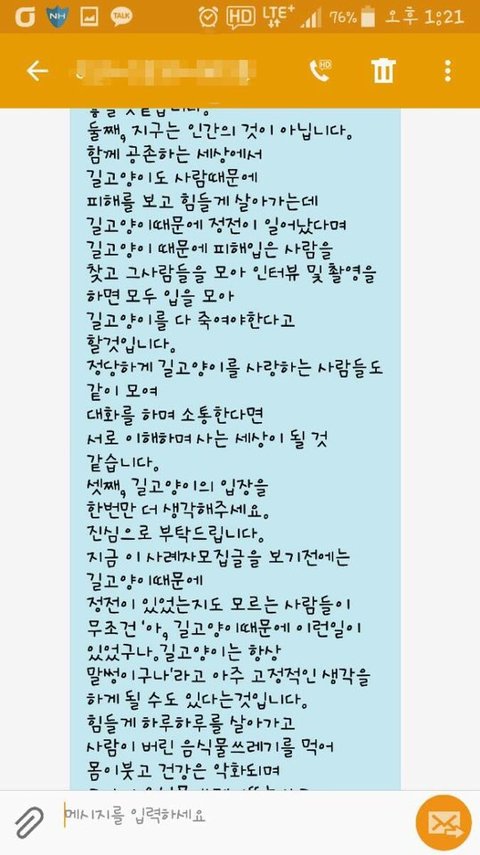 NH TALK HD LTE+ 76% 오후 1:21
HD
둘째, 지구는 인간의 것이 아닙니다.
함께 공존하는 세상에서
길고양이도 사람때문에
피해를 보고 힘들게 살아가는데
길고양이때문에 정전이 일어났다며
길고양이 때문에 피해입은 사람을
찾고 그사람들을 모아 인터뷰 및 촬영을
하면 모두 입을 모아
길고양이를 다 죽여야한다고
할것입니다.
정당하게 길고양이를 사랑하는 사람들도
같이 모여
대화를 하며 소통한다면
서로 이해하며 사는 세상이 될 것
같습니다.
셋째, 길고양이의 입장을
한번만 더 생각해주세요.
진심으로 부탁드립니다.
지금 이 사례자모집글을 보기전에는
길고양이때문에
정전이 있었는지도 모르는 사람들이
무조건 '아, 길고양이때문에 이런일이
있었구나.길고양이는 항상
말썽이구나'라고 아주 고정적인 생각을
하게 될 수도 있다는것입니다.
힘들게 하루하루를 살아가고
사람이 버린 음식물쓰레기를 먹어
몸이붓고 건강은 악화되며
메시지를 입력하세요